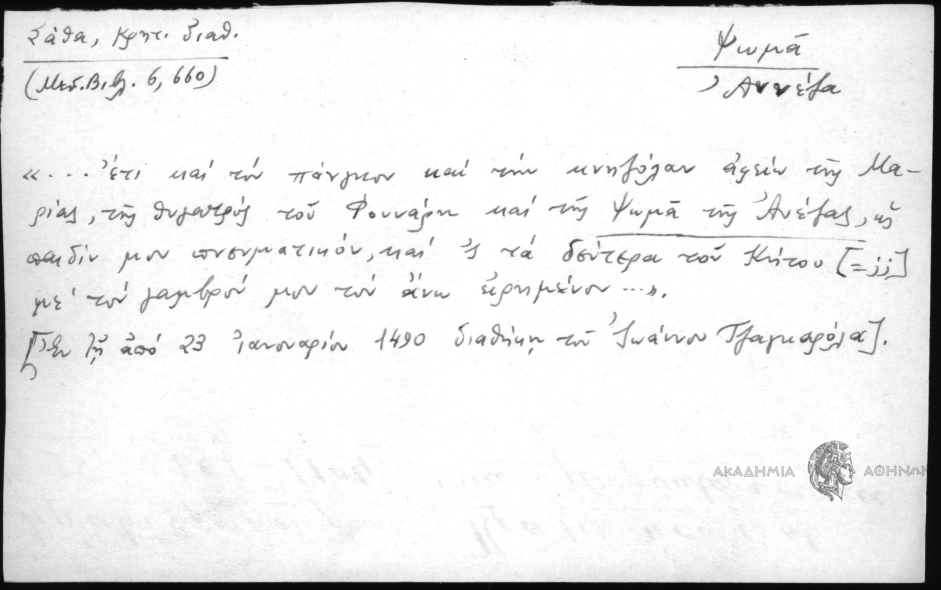 Σάθα, Κρητ. διαθ.
(Μεσ. Βιβλ. 6, 660)
Ψωμᾶ
Ἀννέζα
«... ἔτι καὶ τὸν πάγκον καὶ τὴν τῆς Μα-
ρίας, τῆς θυγατρός τοῦ Φουνάρη καὶ τῆς Ψωμᾶ τῆς Ἀνέζας, ὡς
παιδίν μου πνευματικόν, καὶ τὰ δεύτερα τοῦ Κήτου [=;;]
μὲ τὸν γαμβρόν μου τὸν ἄνω εἰρημένον ...».
[Ἐν τῇ ἀπό 23 Ἰανουαρίου 1490 διαθήκῃ τοῦ Ἰωάννου Τζαγκαρόλα].
ΑΚΑΔΗΜΙΑ ΑΘΗΝΩΝ